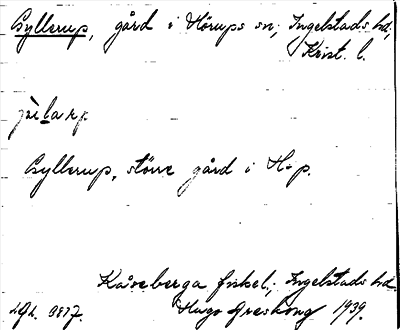 Gyllerup, gård i Hörups sn; Ingelstads hd,
Krist. l.
Gyllerup, större gård i H-p.
Kåseberga fiskel.; Ingelstads hd.
Hugo Areskoug 1939.